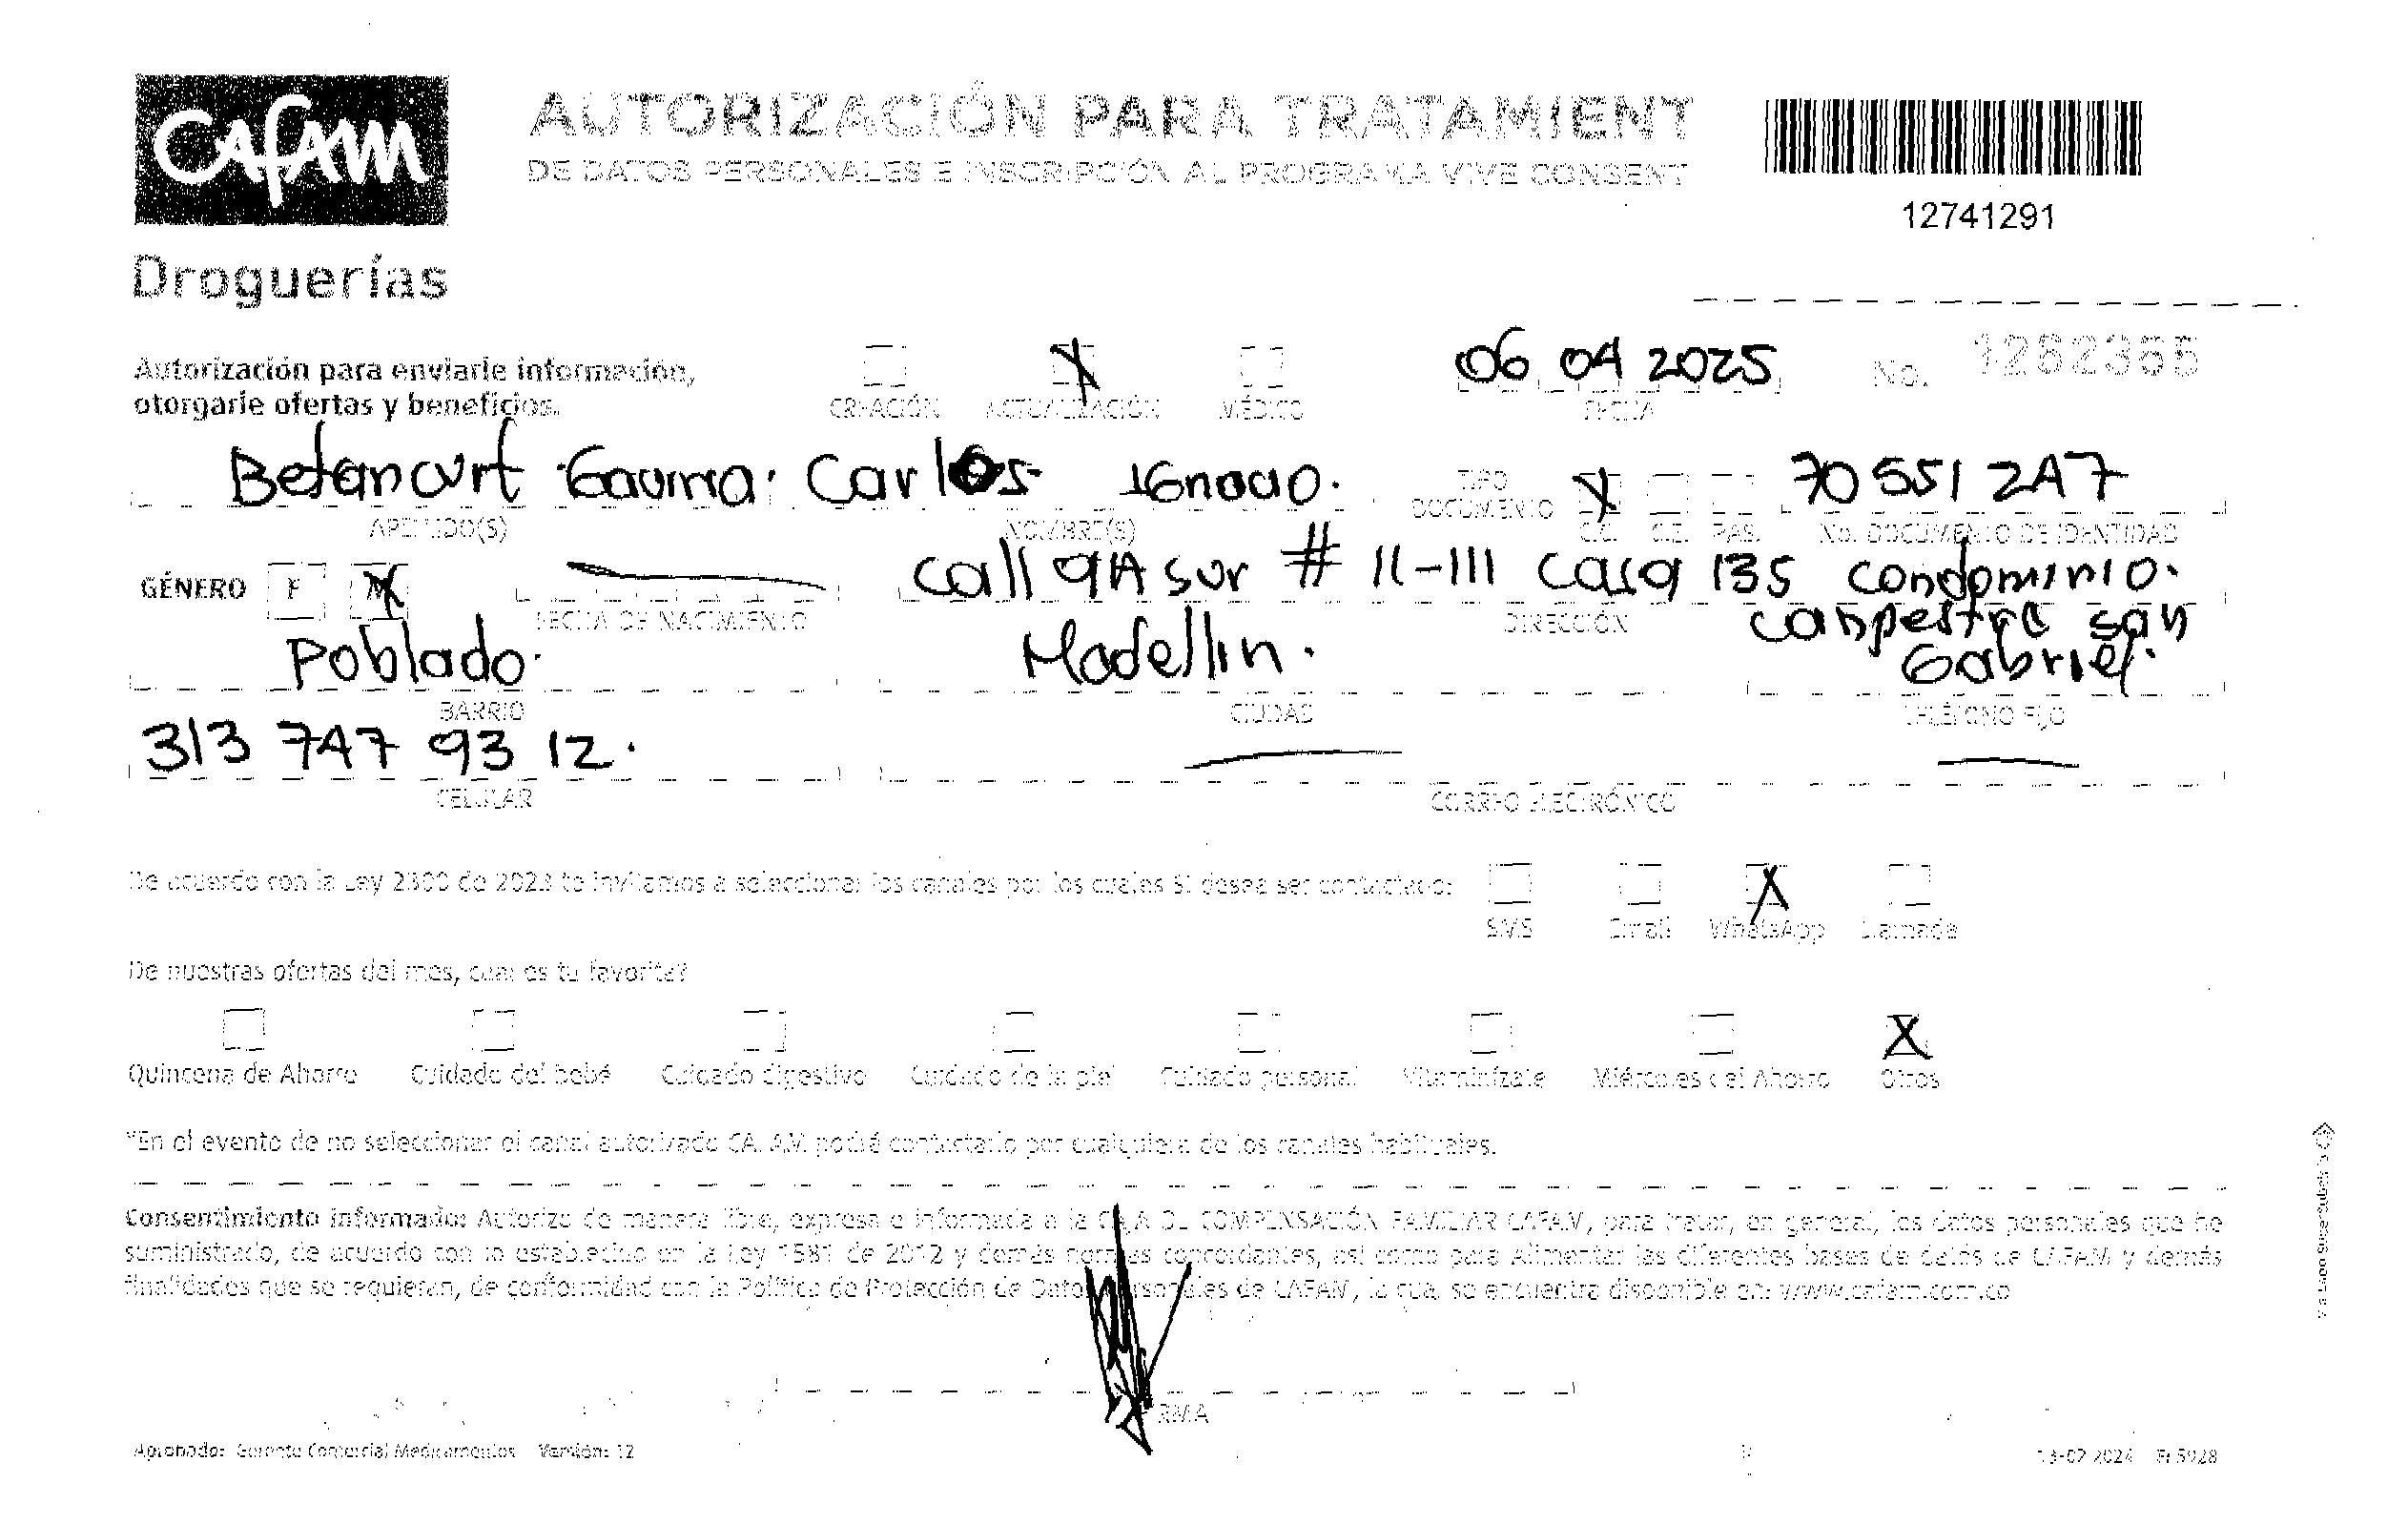 Cafam
AUTORIZACIÓN PARA TRATAMIENT
DE DATOS PERSONALES E INSCRIPCIÓN AL PROGRAMA VIVE CONSENT
12741291
Droguerías
Autorización para enviarle información,
otorgarle ofertas y beneficios.
CREACIÓN ACTUALIZACIÓN MÉDICO
X
06 04 2025
FECHA
No. 1262355
Betancurt Gaviria Carlos IGnacio.
APELLIDO(S) NOMBRE(S)
TIPO DOCUMENTO
X
C.C. C.E. PAS.
70 551 247
No. DOCUMENTO DE IDENTIDAD
GÉNERO F M X
FECHA DE NACIMIENTO
call 9A sur # 11-111 casa 135 condominio.
campestre san
Gabriel.
DIRECCIÓN
Poblado.
BARRIO
Medellin.
CIUDAD
TELÉFONO FIJO
313 747 93 12.
CELULAR
CORREO ELECTRÓNICO
De acuerdo con la Ley 2300 de 2023 te invitamos a seleccionar los canales por los cuales SI desea ser contactado:
X
SMS Email WhatsApp Llamada
De nuestras ofertas del mes, cual es tu favorita?
X
Quincena de Ahorro Cuidado del bebé Cuidado digestivo Cuidado de la piel Cuidado personal Vitaminízate Miércoles del Ahorro Otros
*En el evento de no seleccionar el canal autorizado CAFAM podrá contactarlo por cualquiera de los canales habituales.
Consentimiento informado: Autorizo de manera libre, expresa e informada a la CAJA DE COMPENSACIÓN FAMILIAR CAFAM, para tratar, en general, los datos personales que he
suministrado, de acuerdo con lo establecido en la Ley 1581 de 2012 y demás normas concordantes, así como para Alimentar las diferentes bases de datos de CAFAM y demás
finalidades que se requieran, de conformidad con la Política de Protección de Datos Personales de CAFAM, la cual se encuentra disponible en: www.cafam.com.co
FIRMA
Aprobado: Gerente Comercial Medicamentos Versión: 12
13-02 2024 Ft 5928